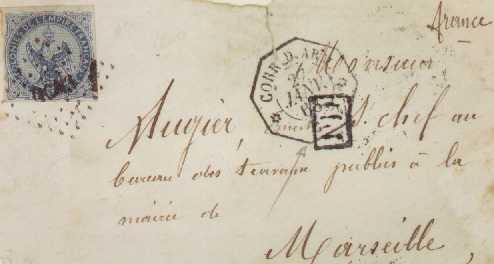 France
COLONIES DE L'EMPIRE FRANÇAIS
CORR. D. AR
JANV
Monsieur
Mugier, S. chef au
bureau des travaux publics à la
mairie de
Marseille,